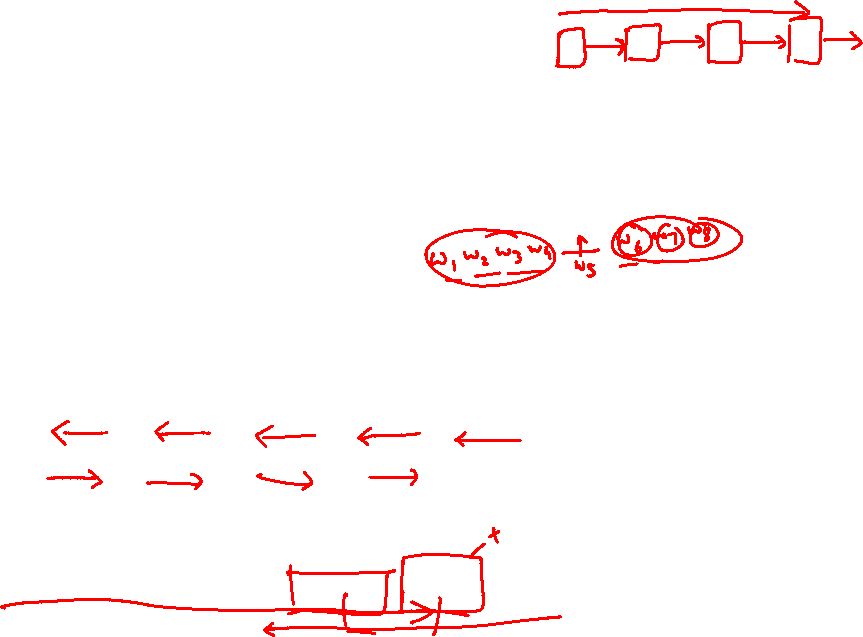 w1 w2 w3 w4 w5 w6 w7 w8
x